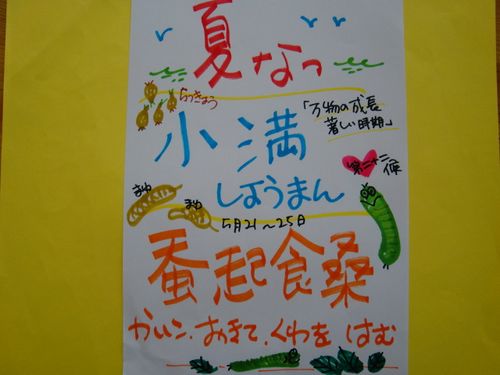 夏なつ
らっきょう
「万物の成長
著しい時期」
小満
第二十二候
しょうまん
まゆ
まゆ
5月21〜25日
蚕起食桑
かいこ.おきて.くわを はむ